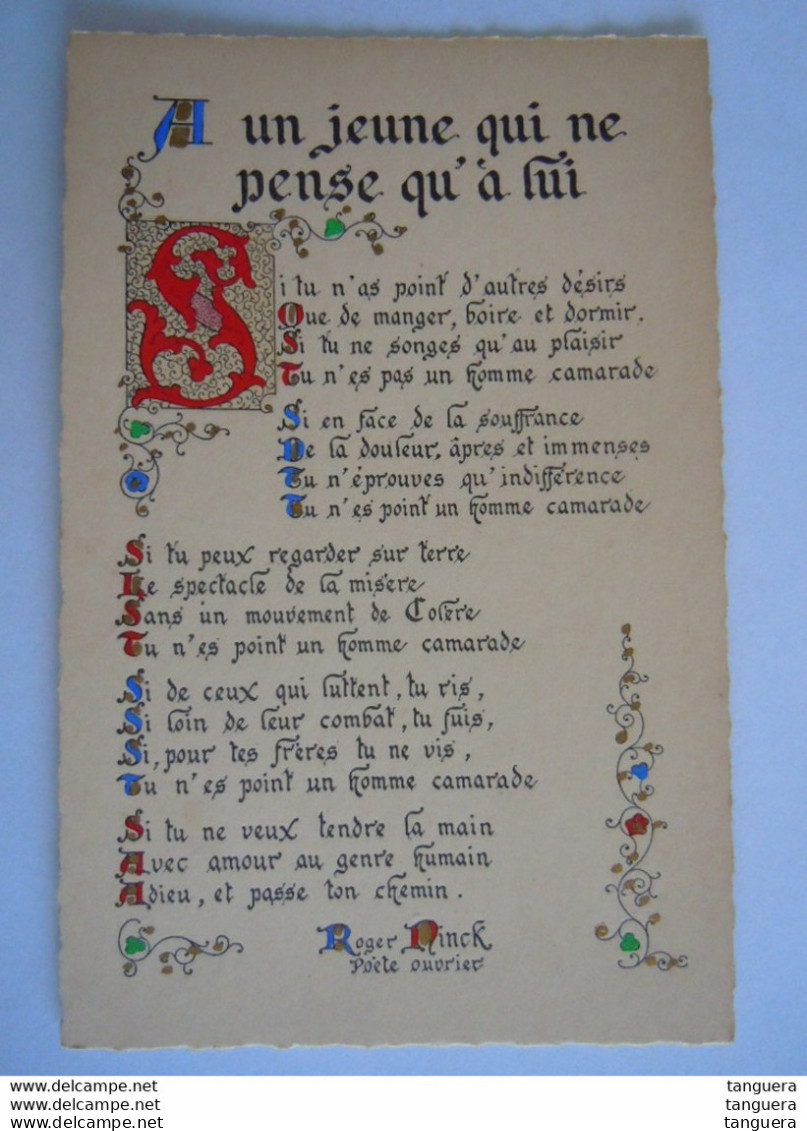 A un jeune qui ne
pense qu'à lui
Si tu n'as point d'autres désirs
Que de manger, boire et dormir.
Si tu ne songes qu'au plaisir
Tu n'es pas un homme camarade
Si en face de la souffrance
De la douleur, âpres et immenses
Tu n'éprouves qu'indifférence
Tu n'es point un homme camarade
Si tu peux regarder sur terre
Le spectacle de la misere
Sans un mouvement de Colère
Tu n'es point un homme camarade
Si de ceux qui luttent, tu ris,
Si loin de leur combat, tu fuis,
Si, pour tes frères tu ne vis,
Tu n'es point un homme camarade
Si tu ne veux tendre la main
Avec amour au genre humain
Adieu, et passe ton chemin.
Roger Ninck
Poète ouvrier
www.delcampe.net tanguera
www.delcampe.net tanguera
www.delcampe.net tanguera